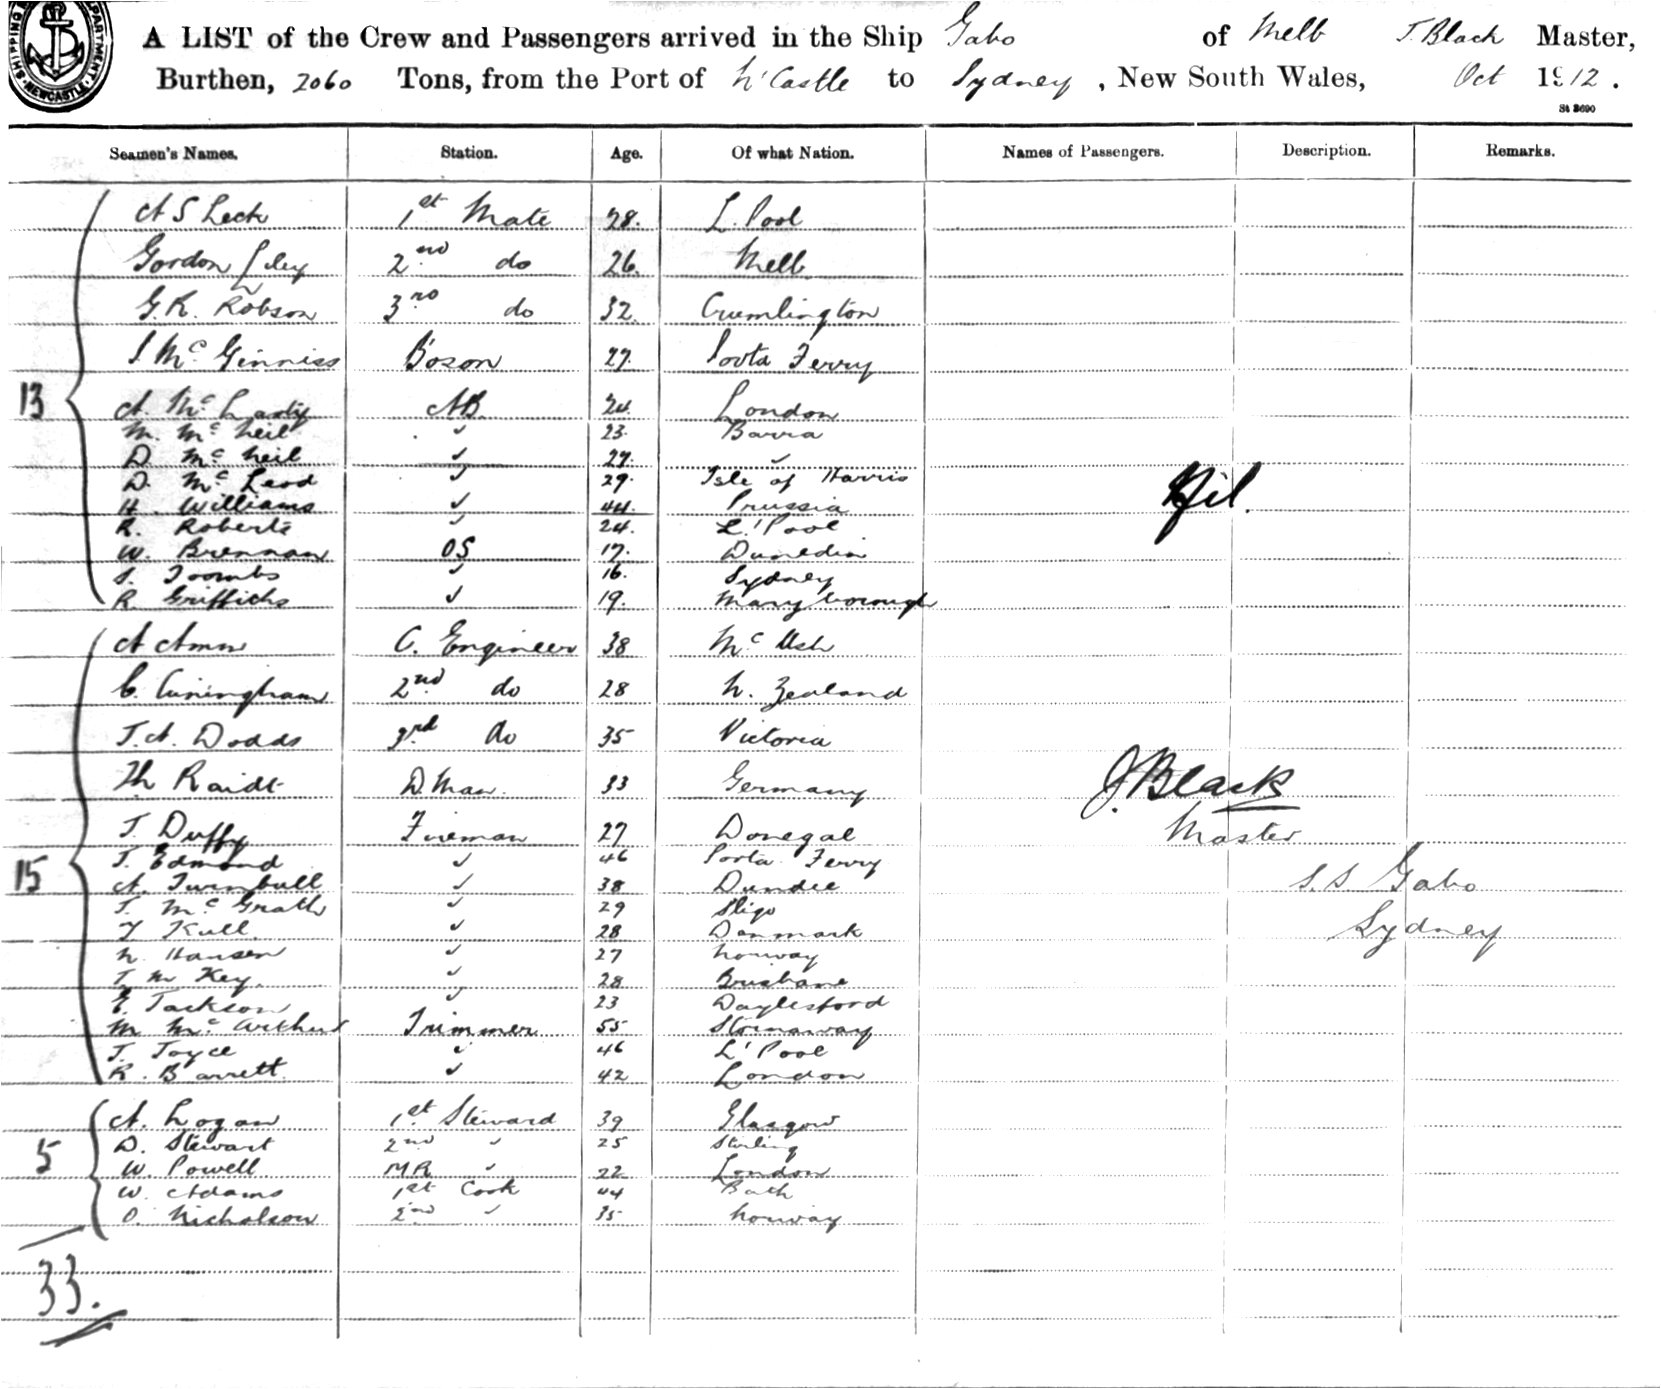 SHIPPING DEPARTMENT NEWCASTLE
A LIST of the Crew and Passengers arrived in the Ship Gabo of Melb J. Black Master,
Burthen, 2060 Tons, from the Port of N'Castle to Sydney, New South Wales, Oct 1912.
St 3690
Seamen's Names. Station. Age. Of what Nation. Names of Passengers. Description. Remarks.
A S Leck 1st Mate 28. L. Pool
Gordon Liley 2nd do 26. Melb
G. R. Robson 3rd do 32. Cramlington
Mc Ginniss Boson 27. Porta Ferry
13
A. Mc Larty AB 24. London
M. Mc Neil ✓ 23. Barra
D. Mc Neil ✓ 27. ✓
D. Mc Leod ✓ 29. Isle of Harris
H. Williams ✓ 44. Prussia
Nil.
R. Roberts ✓ 24. L'Pool
W. Brennan OS 17. Dunedin
S. Toombs ✓ 16. Sydney
R. Griffiths ✓ 19. Maryborough
A Amm C. Engineer 38
C. Cuningham 2nd do 28 N. Zealand
J. A. Dodds 3rd do 35 Victoria
Th Raidt D. Man. 33 Germany
J. Black
J. Duffy Fireman 27 Donegal
Master
J. Edmond ✓ 46 Porta Ferry
15
A. Turnbull ✓ 38 Dundee
S.S Gabo
J. Mc Grath ✓ 29 Sligo
Kull ✓ 28 Danmark
Sydney
N. Hansen ✓ 27 Norway
Key. ✓ 28 Brisbane
E. Jackson ✓ 23 Daylesford
M Mc Arthur Trimmer 55 Stornaway
J. Joyce ✓ 46 L'Pool
R. Barrett. ✓ 42 London
A. Logan 1st Steward 39 Glasgow
D. Stewart 2nd ✓ 25 Stirling
5
W. Powell MR ✓ 22 London
W. Adams 1st Cook 44 Bath
O. Nicholson 2nd ✓ 35 Norway
33.